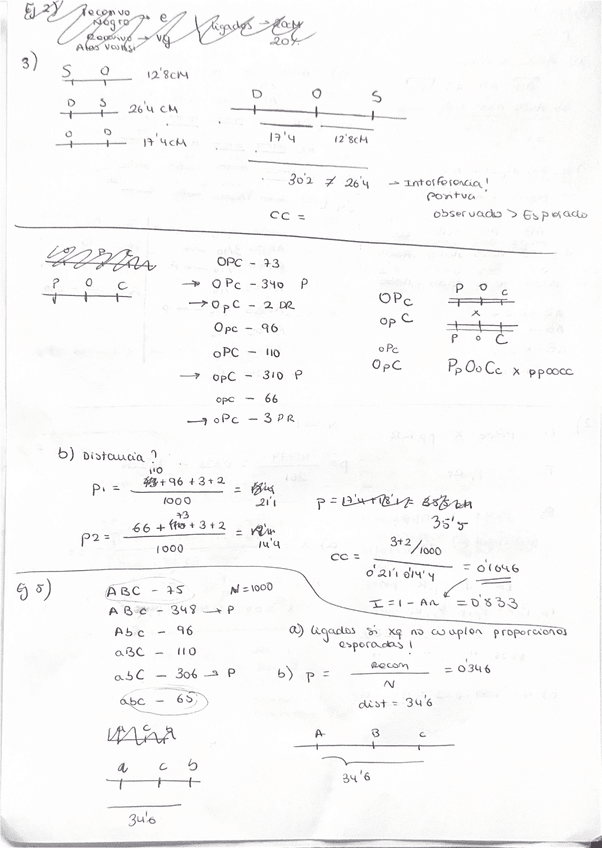 Ej 2)
Reconvo
Negro → e
Ligados → 20cM
Recomvo → vg
20%
3)
S O 12'8cM
D S 26'4 cM
O D 17'4cM
D O S
17'4 12'8cM
30'2 ≠ 26'4 → Interferencia!
positiva
CC = observado > Esperado
P O C
OPC - 73
→ OPc - 340 P
→ OpC - 2 DR
Opc - 96
oPC - 110
→ opC - 310 P
opc - 66
→ oPc - 3 DR
OPc
opC
oPc
OpC
P O c
x
p o C
PpOoCc x ppoocc
b) Distancia?
110
P1 = + 96 + 3 + 2 / 1000 = 21'1
73
P2 = 66 + + 3 + 2 / 1000 = 14'4
P = 35'5
CC = 3+2/1000 / 0'211·0'144 = 0'1646
I = 1 - = 0'833
Ej 5)
ABC - 75 N=1000
ABc - 348 → P
Abc - 96
aBC - 110
abC - 306 → P
abc - 65
a c b
34'6
a) Ligados si xq no cumplen proporciones
esperadas!
b) P = Recom / N = 0'346
dist = 34'6
A B c
34'6